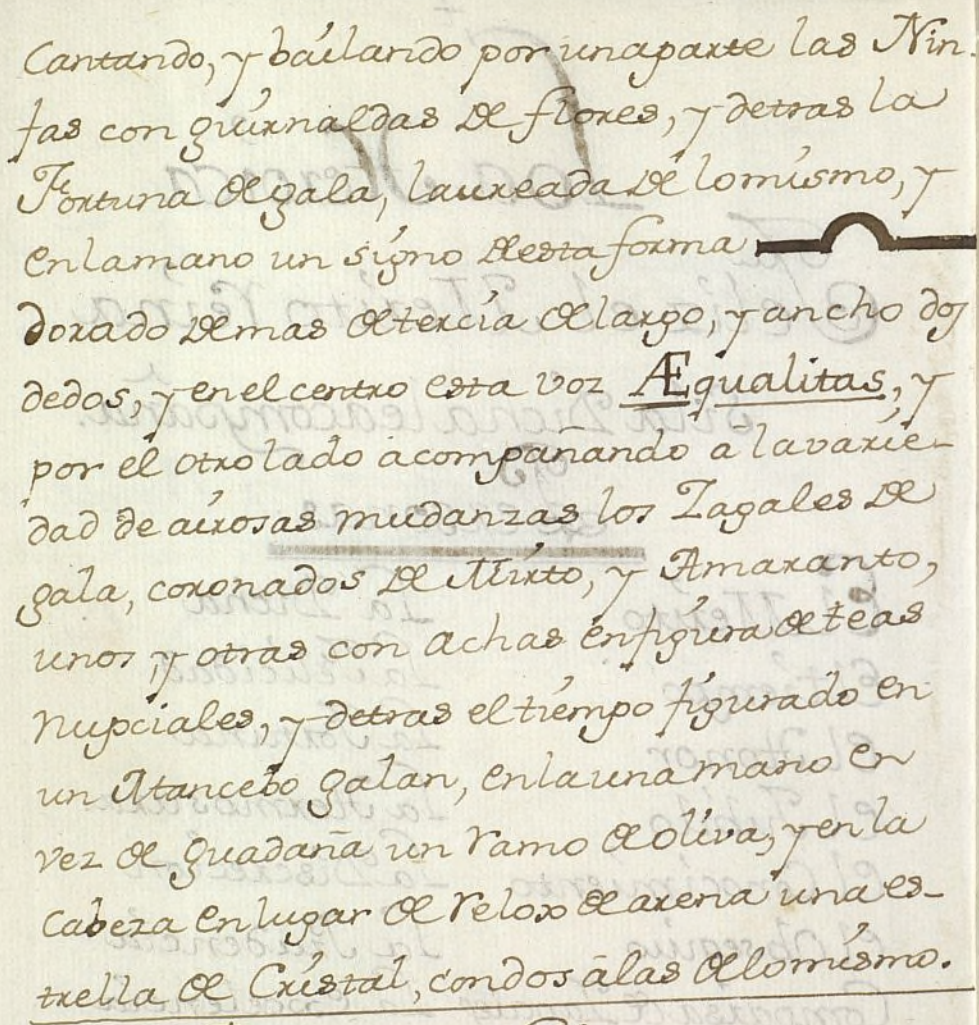 Cantando, y báilando por una parte las Nin-
fas con guirnaldas de flores, y detras la
Fortuna de gala, laureada de lo mismo, y
en la mano un signo de esta forma
dorado de mas de tercia de largo, y ancho dos
dedos, y en el centro esta voz Æqualitas, y
por el otro lado acompañando à la varie-
dad de airosas mudanzas los Zagales de
gala, coronados de Mirto, y Amaranto,
unos, y otras con achas en figura de teas
nupciales, y detras el tiempo figurado en
un Mancebo galan, en la una mano en
vez de guadaña un ramo de oliva, y en la
Cabeza en lugar de relox de arena una es-
trella de Cristal, con dos àlas de lo mismo.